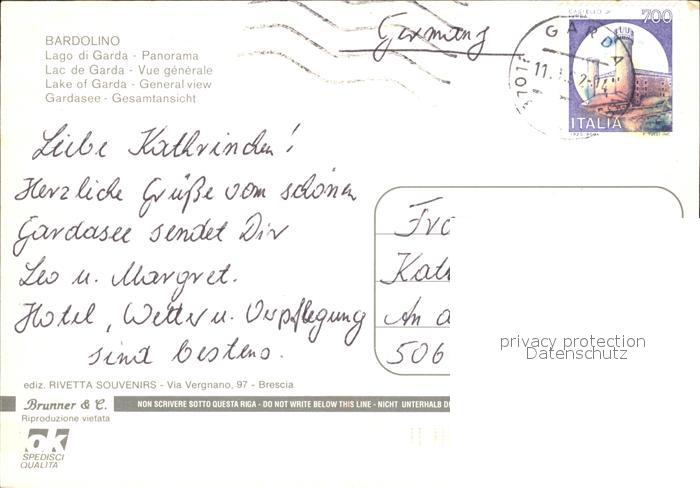 BARDOLINO
Lago di Garda - Panorama
Lac de Garda - Vue générale
Lake of Garda - General view
Gardasee - Gesamtansicht
Germany
GARDA
37017
700
ITALIA
Liebe Kathrinchen!
Herzliche Grüße vom schönen
Gardasee sendet Dir
Leo u. Margret.
Hotel, Wetter u. Verpflegung
sind bestens.
Fr
Kath
An d
506
privacy protection
Datenschutz
ediz. RIVETTA SOUVENIRS - Via Vergnano, 97 - Brescia
Brunner & C.
Riproduzione vietata
NON SCRIVERE SOTTO QUESTA RIGA - DO NOT WRITE BELOW THIS LINE - NICHT UNTERHALB D
ok
SPEDISCI
QUALITÀ